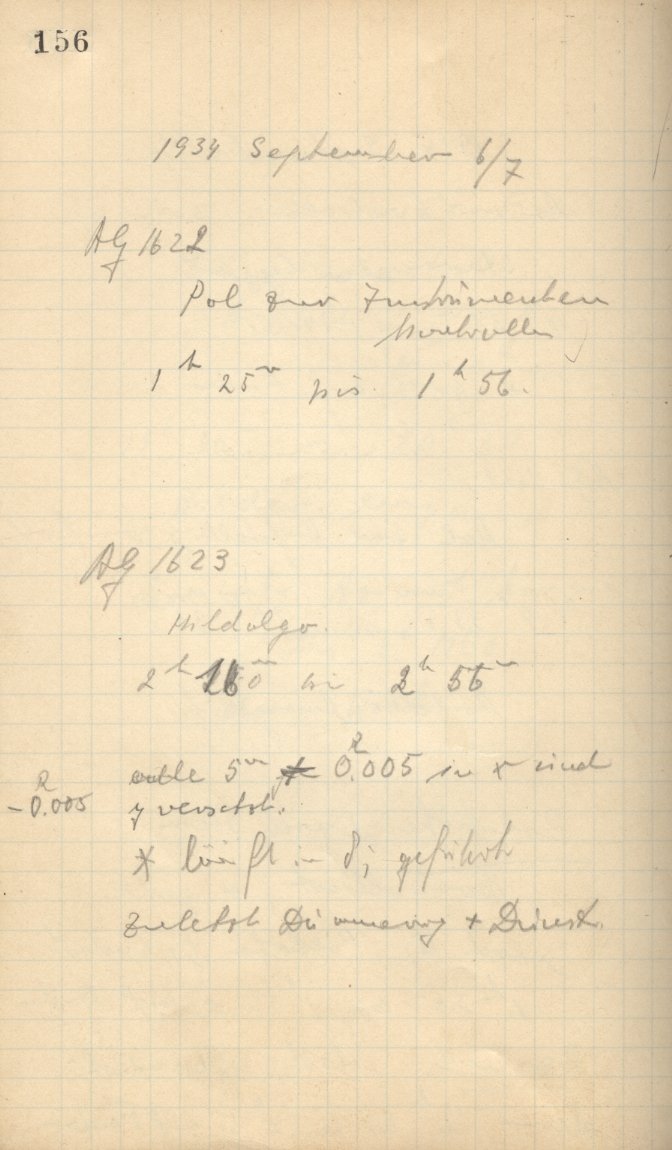 156
1934 September 6/7
AG 1622
Pol zur Instrumenten
kontrolle
1h 25m bis 1h 56.
AG 1623
Hidalgo.
2h 16m bis 2h 56m
alle 5m 0R.005 in x und
-0R.005 y verstellt.
* läuft in δ; geführt
zuletzt Dämmerung + Dunst.